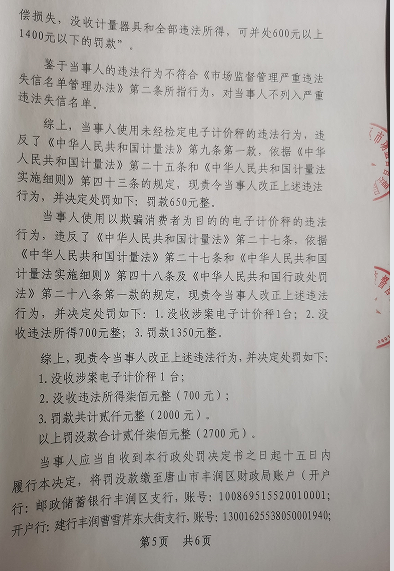 偿损失，没收计量器具和全部违法所得，可并处600元以上
1400元以下的罚款”。
鉴于当事人的违法行为不符合《市场监督管理严重违法
失信名单管理办法》第二条所指行为，对当事人不列入严重
违法失信名单。
综上，当事人使用未经检定电子计价秤的违法行为，违
反了《中华人民共和国计量法》第九条第一款，依据《中华
人民共和国计量法》第二十五条和《中华人民共和国计量法
实施细则》第四十三条的规定，现责令当事人改正上述违法
行为，并决定处罚如下：罚款650元整。
当事人使用以欺骗消费者为目的的电子计价秤的违法
行为，违反了《中华人民共和国计量法》第二十七条，依据
《中华人民共和国计量法》第二十七条和《中华人民共和国
计量法实施细则》第四十八条及《中华人民共和国行政处罚
法》第二十八条第一款的规定，现责令当事人改正上述违法
行为，并决定处罚如下：1.没收涉案电子计价秤1台；2.没
收违法所得700元整；3.罚款1350元整。
综上，现责令当事人改正上述违法行为，并决定处罚如下：
1.没收涉案电子计价秤1台；
2.没收违法所得柒佰元整（700元）；
3.罚款共计贰仟元整（2000元）。
以上罚没款合计贰仟柒佰元整（2700元）。
当事人应当自收到本行政处罚决定书之日起十五日内
履行本决定，将罚没款缴至唐山市丰润区财政局账户（开户
行：邮政储蓄银行丰润区支行，账号：100869515520010001；
开户行：建行丰润曹雪芹东大街支行，账号：13001625538050001940；
第5页 共6页